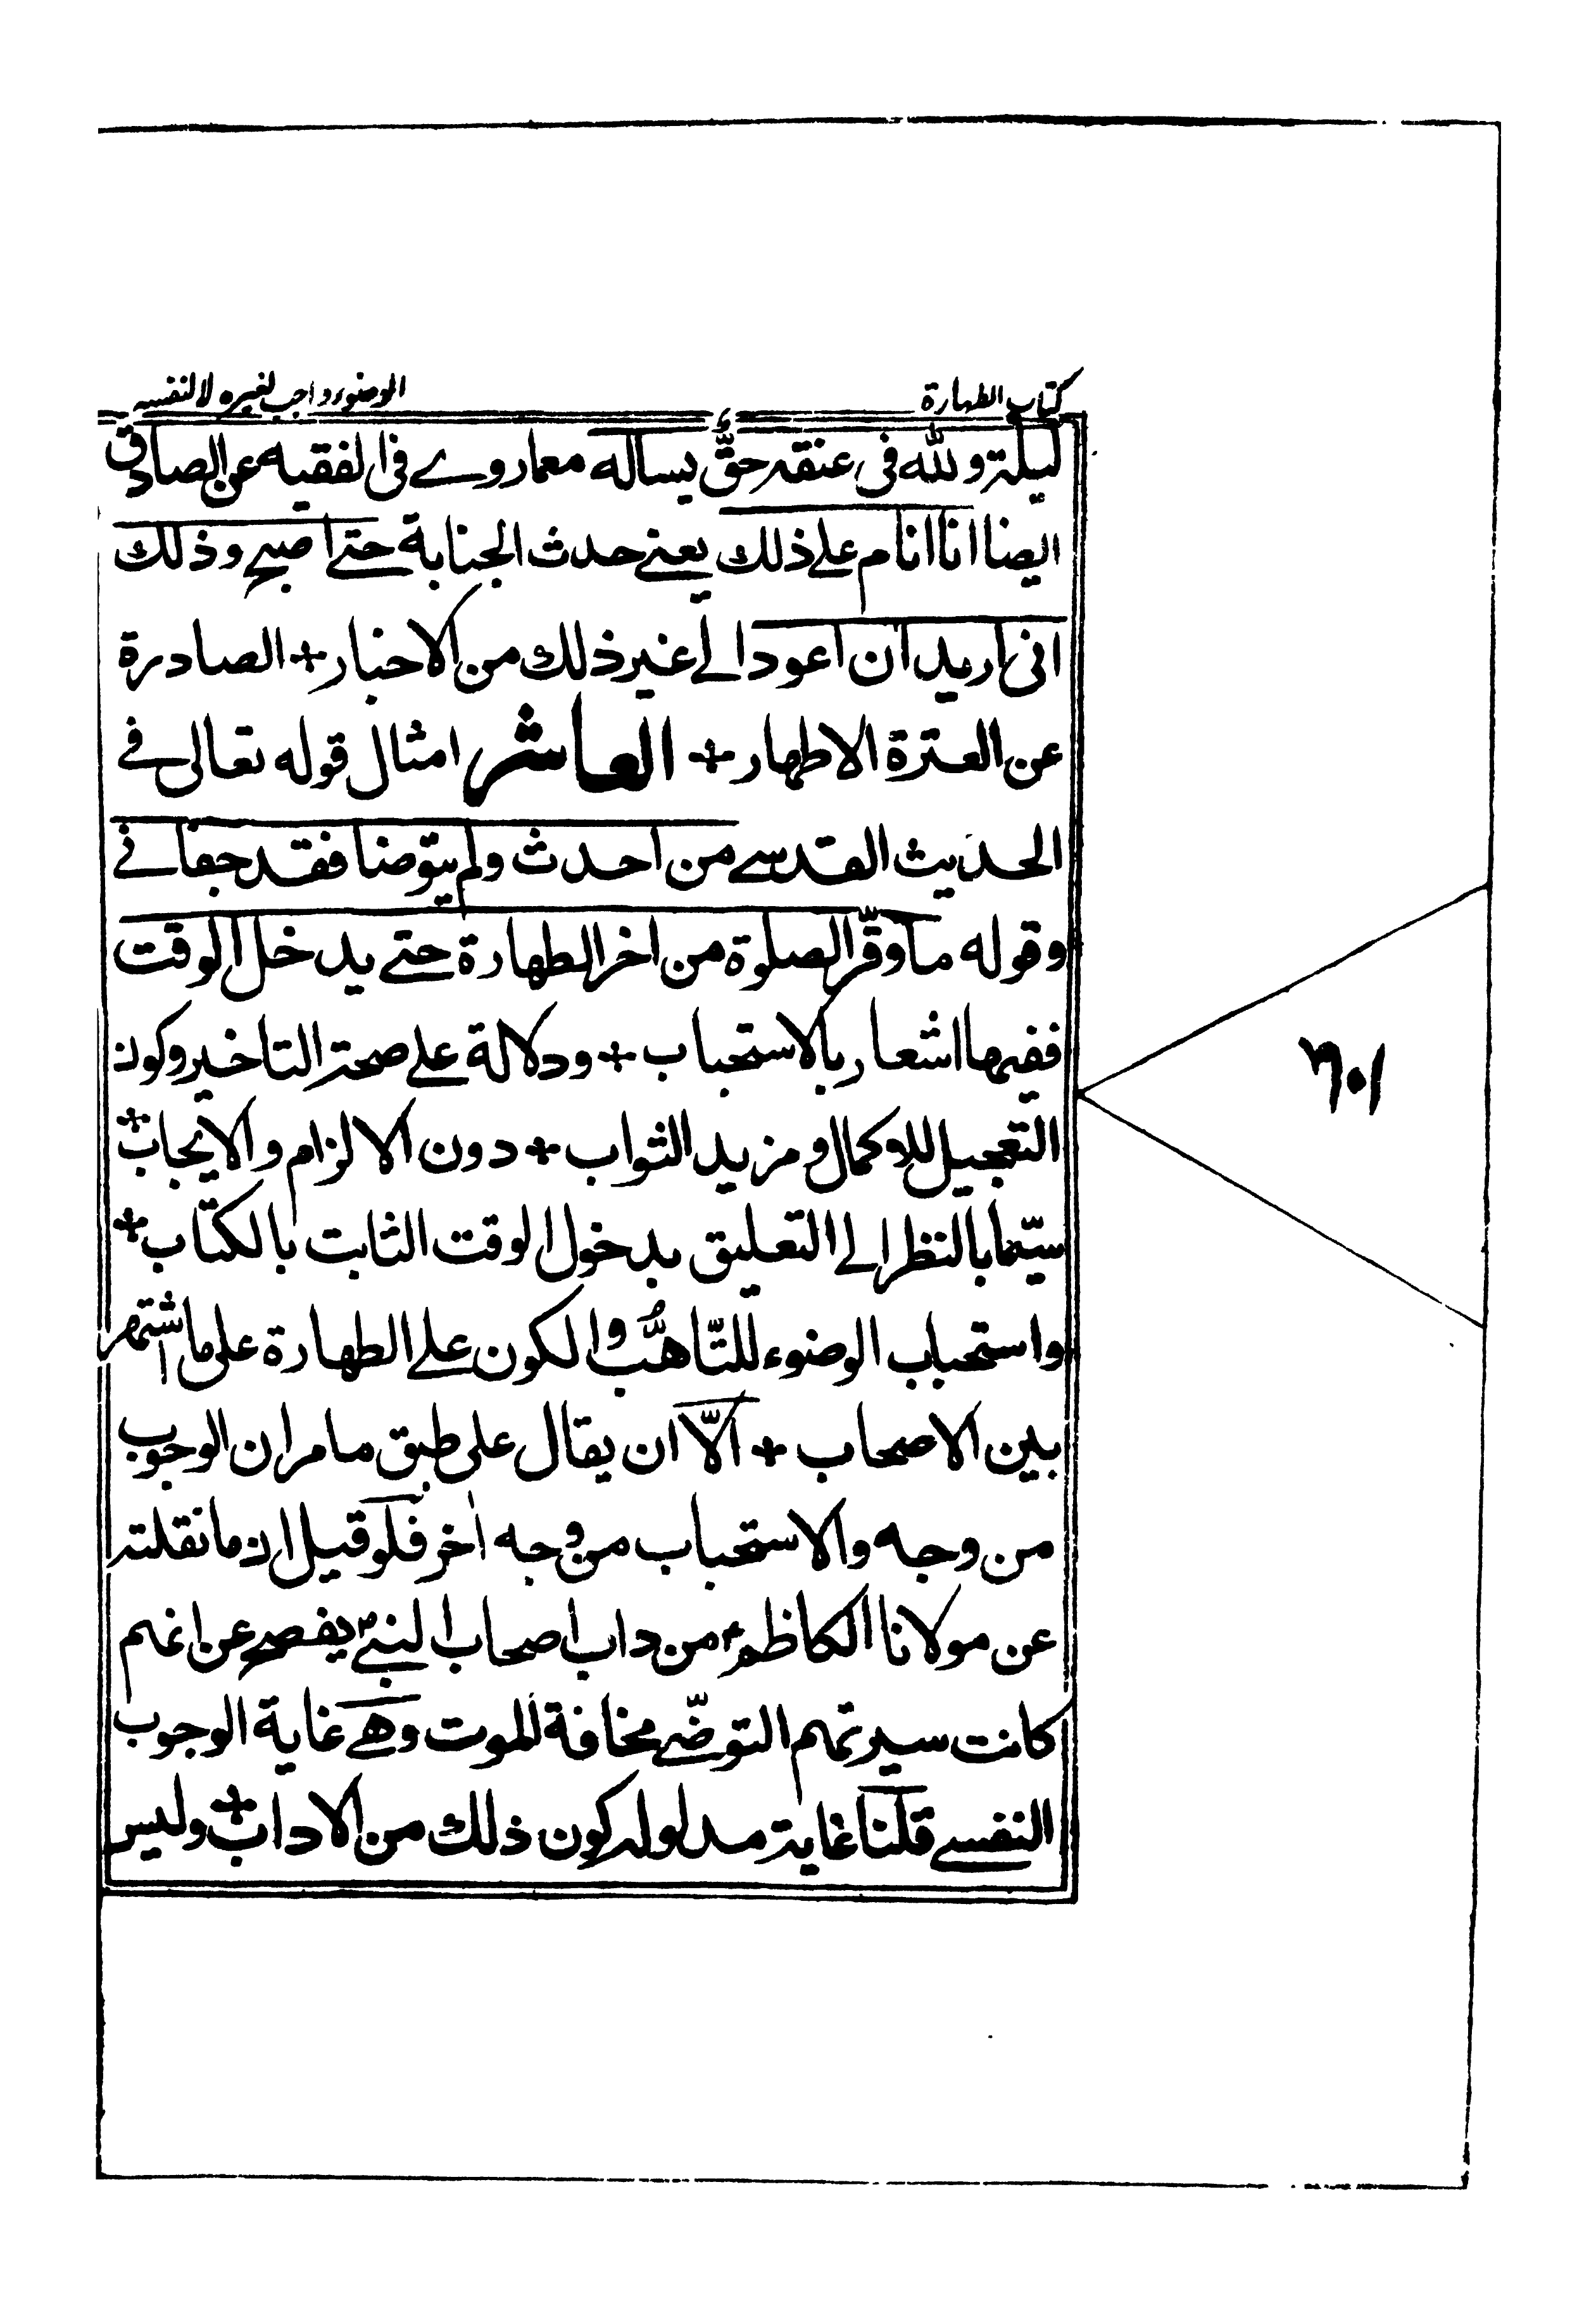 كتاب الطهارة
الوضوء واجب لغيره لا لنفسه
ليلة ولله في عنقه حقّ يساله مع ما روي في الفقيه عن الصادق
ايضا انا انام على ذلك يعني حدث الجنابة حتى اصبح وذلك
اني اريد ان اعود الى غير ذلك من الاخبار + الصادرة
عن العترة الاطهار + العاشر امثال قوله تعالى في
الحديث القدسي من احدث ولم يتوضا فقد جفاني
وقوله ما وقّر الصلوة من اخر الطهارة حتى يدخل الوقت
ففيها اشعار بالاستحباب + ودلالة على صحة التاخير وكون
التعجيل للاكمال ومزيد الثواب + دون الالزام والايجاب +
سيّما بالنظر الى التعليق بدخول الوقت الثابت بالكتاب +
واستحباب الوضوء للتّاهّب والكون على الطهارة على ما اشتهر
بين الاصحاب + الّا ان يقال على طبق ما مر ان الوجوب
من وجه والاستحباب من وجه اخر فلو قيل ان ما نقلته
عن مولانا الكاظم ع من داب اصحاب النبي ص يفصح عن انهم
كانت سيرتهم التوضّي مخافة الموت وهي غاية الوجوب
النفسي قلنا غاية مدلوله كون ذلك من الاداب + وليس